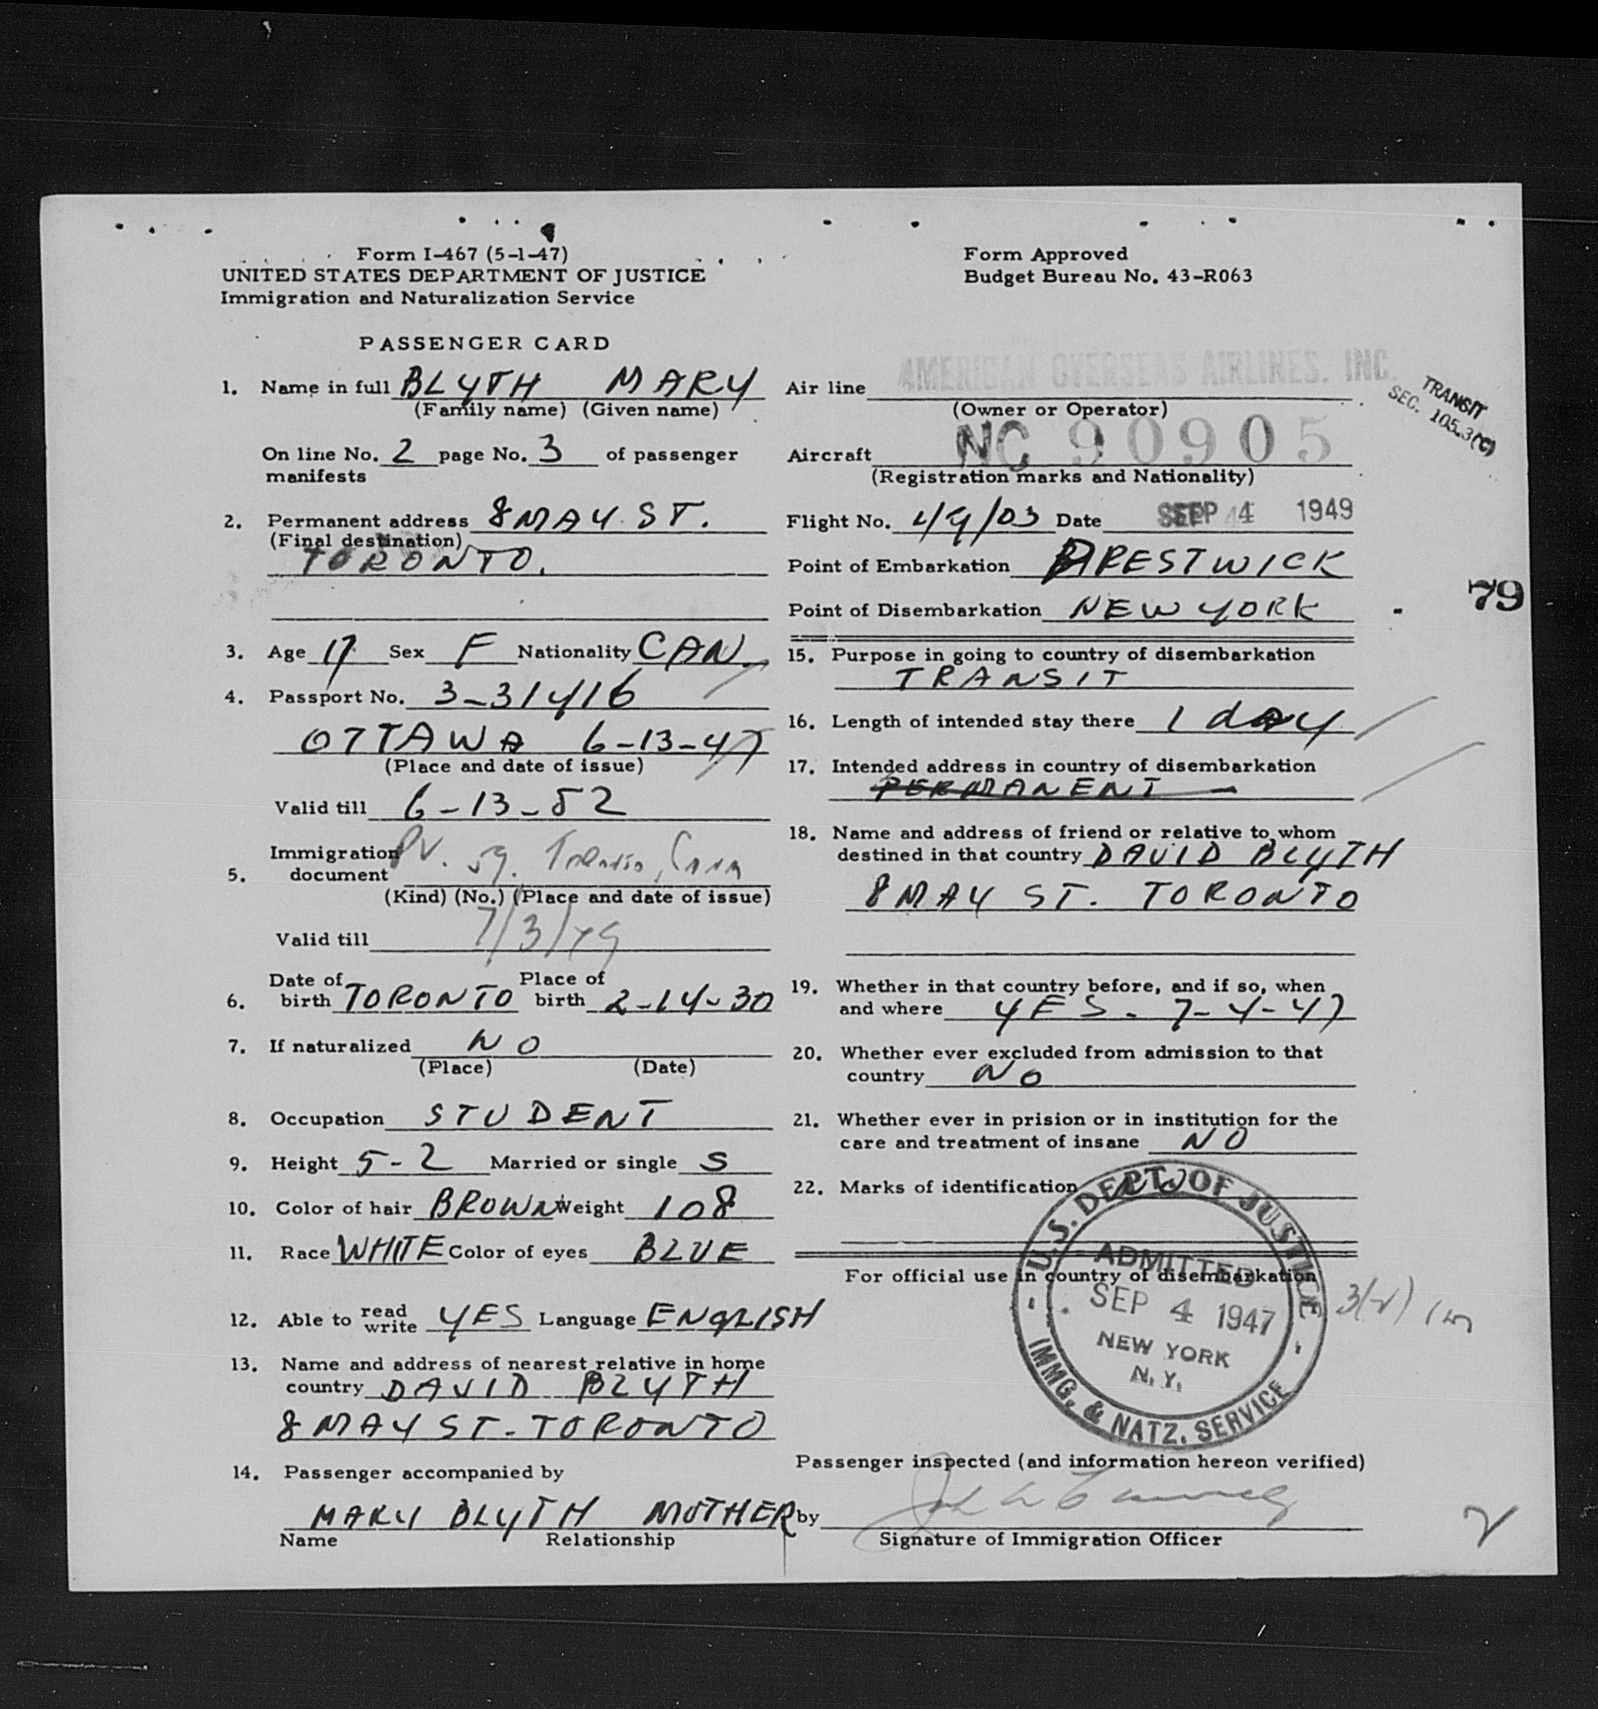 Form I-467 (5-1-47)
UNITED STATES DEPARTMENT OF JUSTICE
Immigration and Naturalization Service
Form Approved
Budget Bureau No. 43-R063
PASSENGER CARD
1. Name in full BLYTH MARY
(Family name) (Given name)
On line No. 2 page No. 3 of passenger
manifests
2. Permanent address 8 MAY ST.
(Final destination)
TORONTO.
3. Age 17 Sex F Nationality CAN.
4. Passport No. 3-31416
OTTAWA 6-13-47
(Place and date of issue)
Valid till 6-13-52
5. Immigration
document Toronto,
(Kind) (No.) (Place and date of issue)
Valid till 7/3/49
6. Date of
birth TORONTO Place of
birth 2-14-30
7. If naturalized NO
(Place) (Date)
8. Occupation STUDENT
9. Height 5-2 Married or single S
10. Color of hair BROWN Weight 108
11. Race WHITE Color of eyes BLUE
12. Able to read
write YES Language ENGLISH
13. Name and address of nearest relative in home
country DAVID BLYTH
8 MAY ST. TORONTO
14. Passenger accompanied by
MARY BLYTH MOTHER
Name Relationship
Air line AMERICAN OVERSEAS AIRLINES, INC.
(Owner or Operator)
TRANSIT
SEC. 105.3(C)
Aircraft NC 90905
(Registration marks and Nationality)
Flight No. 49/03 Date SEP 4 1949
Point of Embarkation PRESTWICK
Point of Disembarkation NEW YORK
79
15. Purpose in going to country of disembarkation
TRANSIT
16. Length of intended stay there 1 day
17. Intended address in country of disembarkation
PERMANENT
18. Name and address of friend or relative to whom
destined in that country DAVID BLYTH
8 MAY ST. TORONTO
19. Whether in that country before, and if so, when
and where YES. 7-4-47
20. Whether ever excluded from admission to that
country NO
21. Whether ever in prision or in institution for the
care and treatment of insane NO
22. Marks of identification NO
For official use in country of disembarkation
U.S. DEPT. OF JUSTICE
ADMITTED
SEP 4 1947
NEW YORK
N.Y.
IMMG. & NATZ. SERVICE
Passenger inspected (and information hereon verified)
by
Signature of Immigration Officer